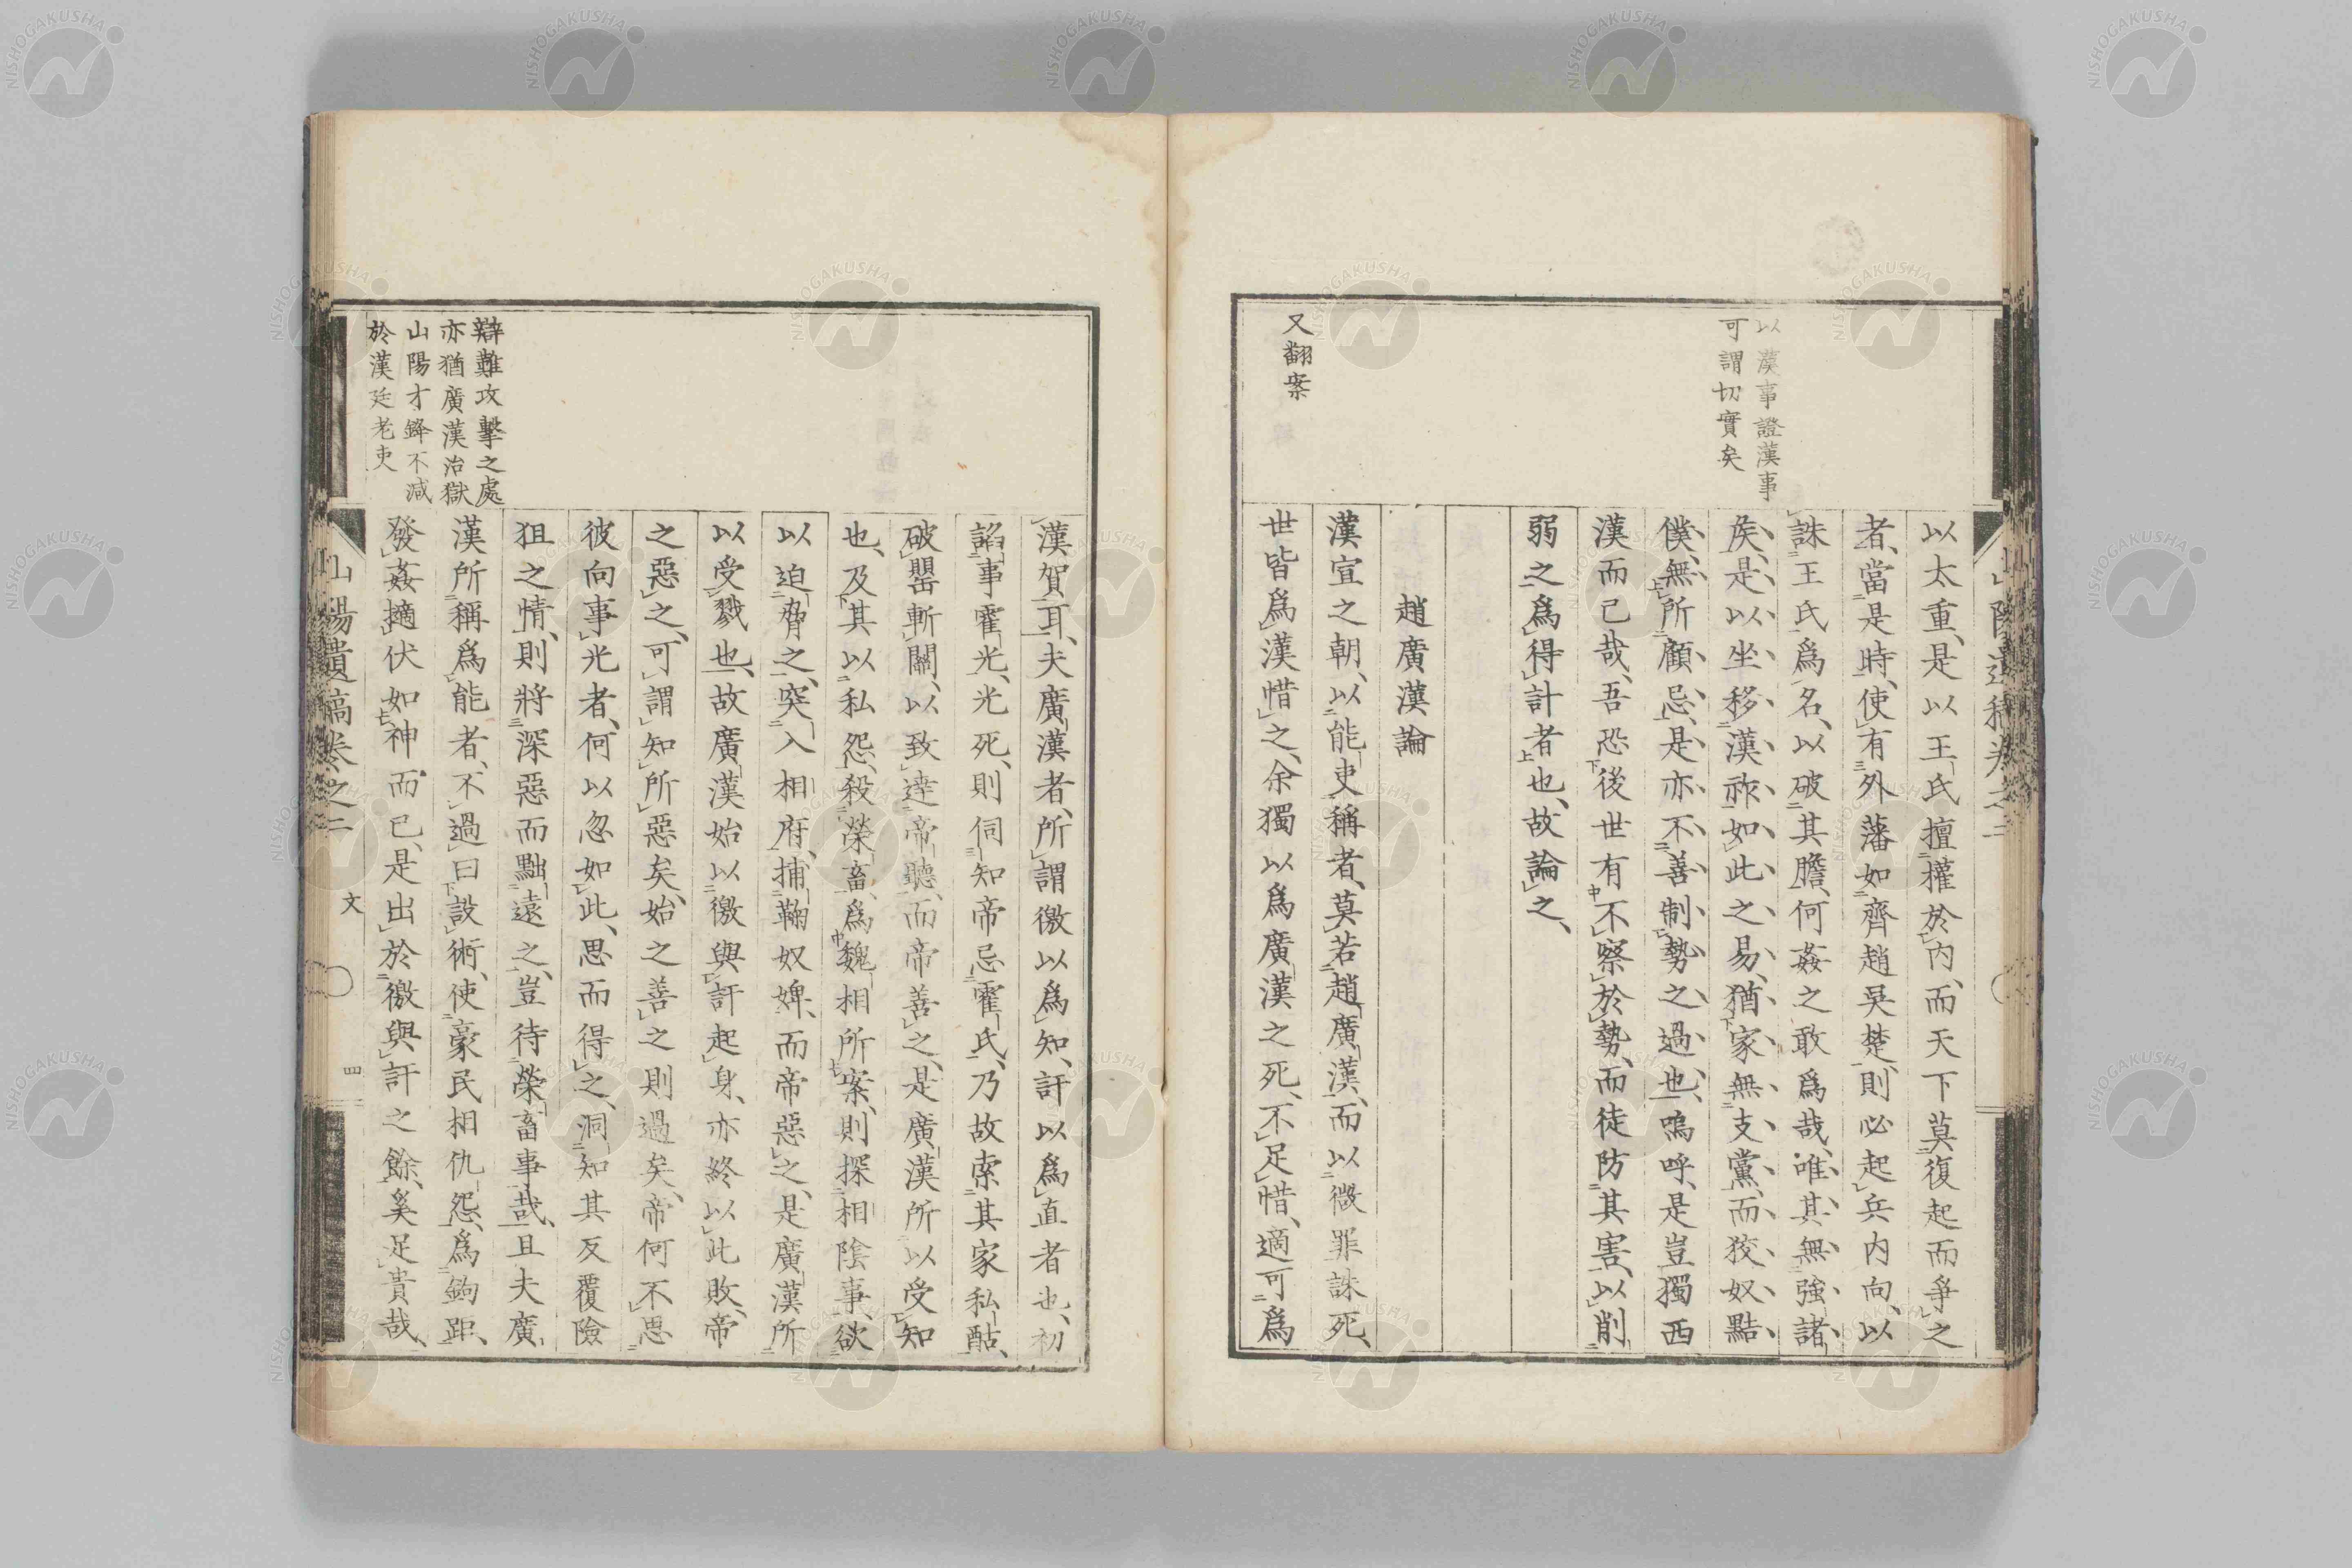 以漢事證漢事
可謂切實矣
以太重、是以王氏擅權於內、而天下莫復起而爭之
者、當是時、使有外藩如齊趙吳楚、則必起兵內向、以
誅王氏爲名、以破其膽、何姦之敢爲哉、唯其無強諸
矦、是以坐移漢祚、如此之易、猶家無支黨、而狡奴黠
僕、無所顧忌、是亦不善制勢之過也、嗚呼、是豈獨西
漢而已哉、吾恐後世有不察於勢、而徒防其害、以削
弱之爲得計者也、故論之、
趙廣漢論
又翻案
漢宣之朝、以能吏稱者、莫若趙廣漢、而以微罪誅死、
世皆爲漢惜之、余獨以爲廣漢之死、不足惜、適可爲
漢賀耳、夫廣漢者、所謂徼以爲知、訐以爲直者也、初
諂事霍光、光死、則伺知帝忌霍氏、乃故索其家私酤、
破罌斬關、以致達帝聽、而帝善之、是廣漢所以受知
也、及其以私怨、殺榮畜、爲魏相所案、則探相陰事、欲
以迫脅之、突入相府、捕鞠奴婢、而帝惡之、是廣漢所
以受戮也、故廣漢始以徼與訐起身、亦終以此敗、帝
之惡之、可謂知所惡矣、始之善之則過矣、帝何不思
彼向事光者、何以忽如此、思而得之、洞知其反覆險
狙之情、則將深惡而黜遠之、豈待榮畜事哉、且夫廣
漢所稱爲能者、不過曰設術、使豪民相仇怨、爲鉤距、
發姦擿伏如神而已、是出於徼與訐之餘、奚足貴哉、
辯難攻擊之處
亦猶廣漢治獄
山陽才鋒不減
於漢廷老吏
山陽遺稿卷之二
文
四